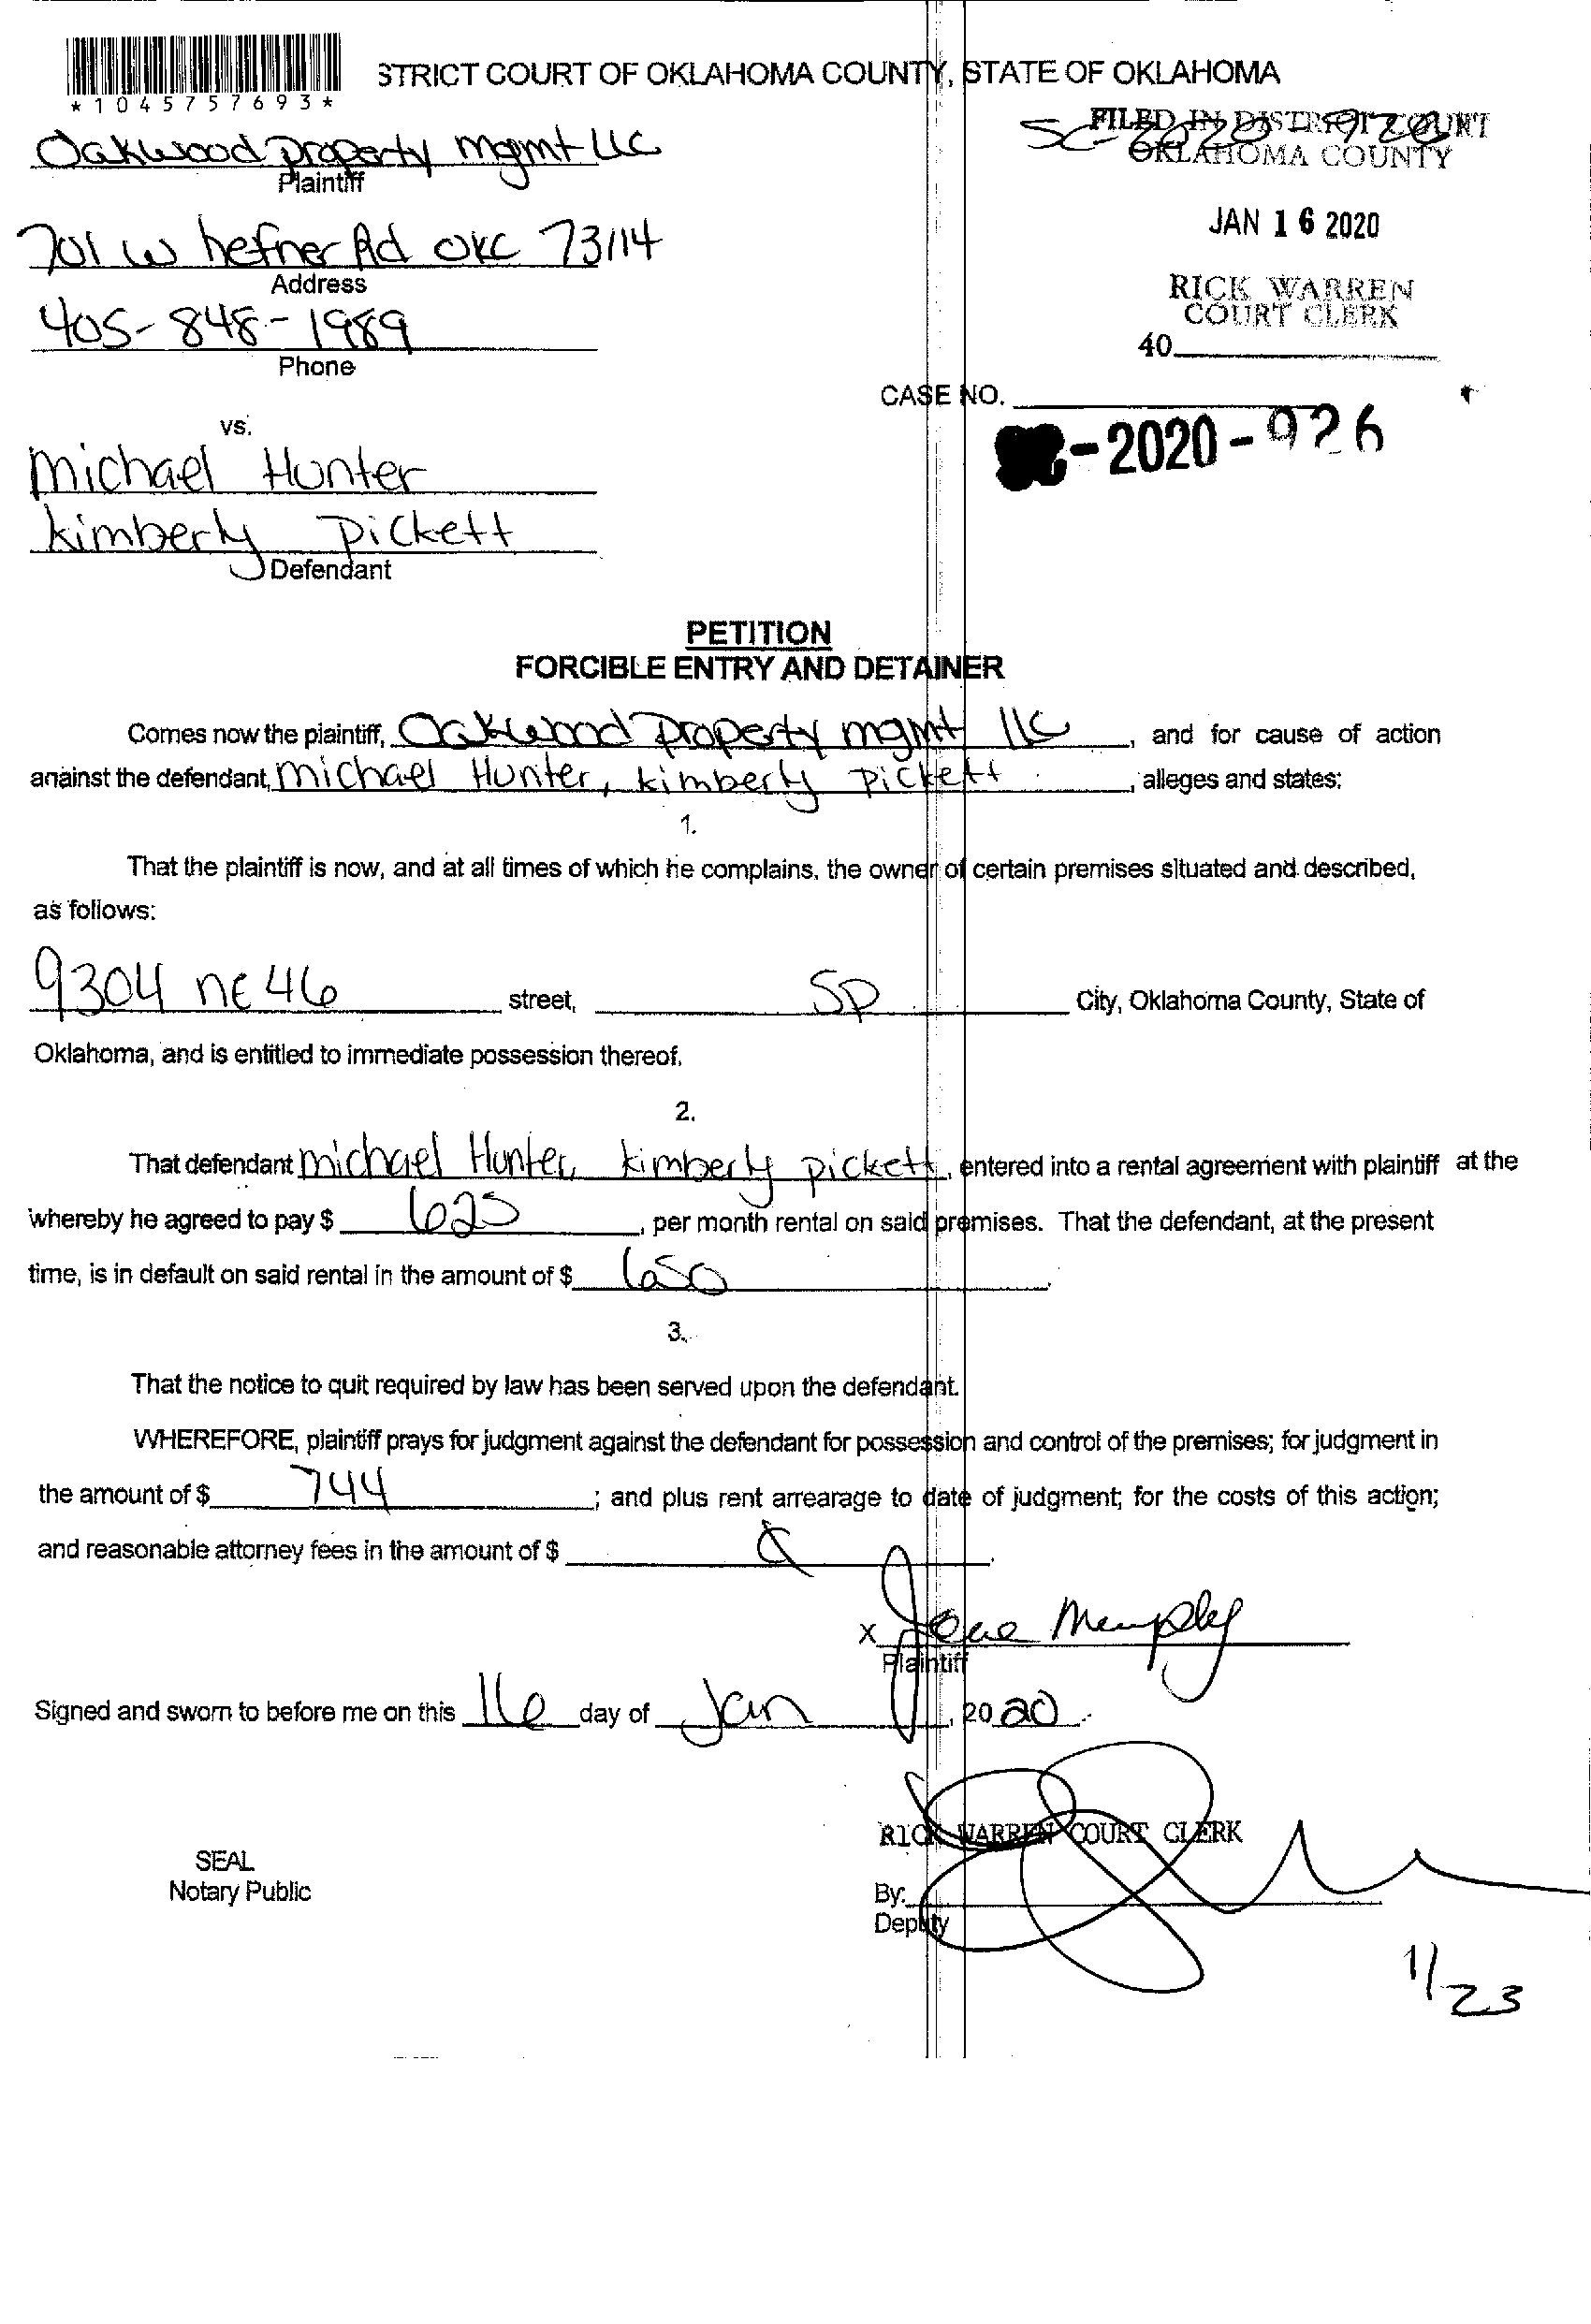 STRICT COURT OF OKLAHOMA COUNTY, STATE OF OKLAHOMA
*1045757693*
FILED IN DISTRICT COURT
OKLAHOMA COUNTY
SC-2020-926
Oakwood property mgmt LLC
Plaintiff
JAN 16 2020
701 W hefner Rd OKC 73114
Address
RICK WARREN
COURT CLERK
405-848-1989
Phone
40
CASE NO.
-2020-926
vs.
Michael Hunter
kimberly Pickett
Defendant
PETITION
FORCIBLE ENTRY AND DETAINER
Comes now the plaintiff, Oakwood property mgmt llc, and for cause of action
against the defendant, Michael Hunter, kimberly Pickett, alleges and states:
1.
That the plaintiff is now, and at all times of which he complains, the owner of certain premises situated and described,
as follows:
9304 NE 46 street, SP City, Oklahoma County, State of
Oklahoma, and is entitled to immediate possession thereof.
2.
That defendant Michael Hunter, kimberly pickett, entered into a rental agreement with plaintiff at the
whereby he agreed to pay $ 625, per month rental on said premises. That the defendant, at the present
time, is in default on said rental in the amount of $ 650.
3.
That the notice to quit required by law has been served upon the defendant.
WHEREFORE, plaintiff prays for judgment against the defendant for possession and control of the premises; for judgment in
the amount of $ 744; and plus rent arrearage to date of judgment; for the costs of this action;
and reasonable attorney fees in the amount of $
X
Plaintiff
Signed and sworn to before me on this 16 day of Jan, 2020.
RICK WARREN COURT CLERK
SEAL
Notary Public
By:
Deputy
1/23